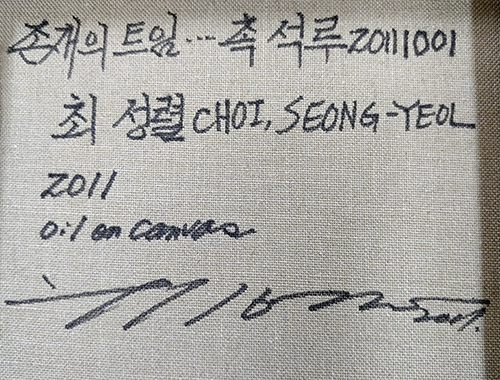 존재의 트임… 촉 석루 2011001
최 성렬 CHOI, SEONG-YEOL
2011
oil on canvas
2011.